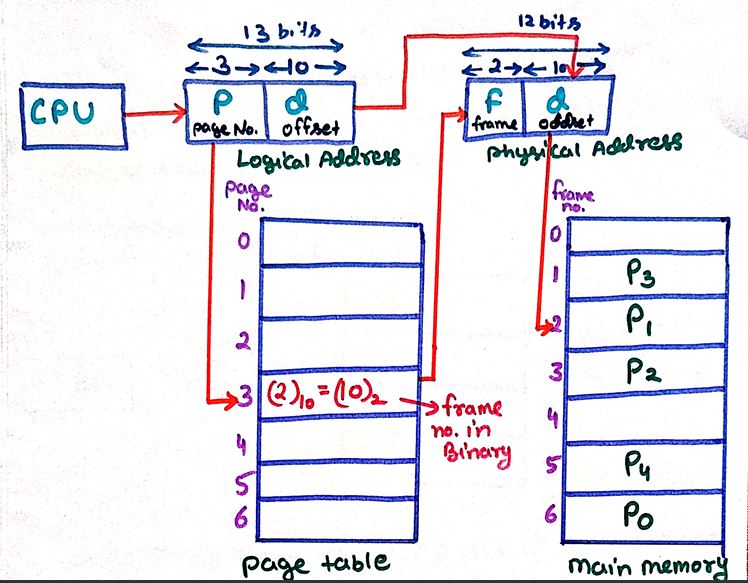 13 bits
12 bits
3 10
2 10
CPU
P d
page No. offset
f d
frame oddset
Logical Address
physical Address
page No.
frame no.
0
1
2
3 (2)10 = (10)2
frame no. in Binary
4
5
6
0
1 P3
2 P1
3 P2
4
5 P4
6 P0
page table
main memory